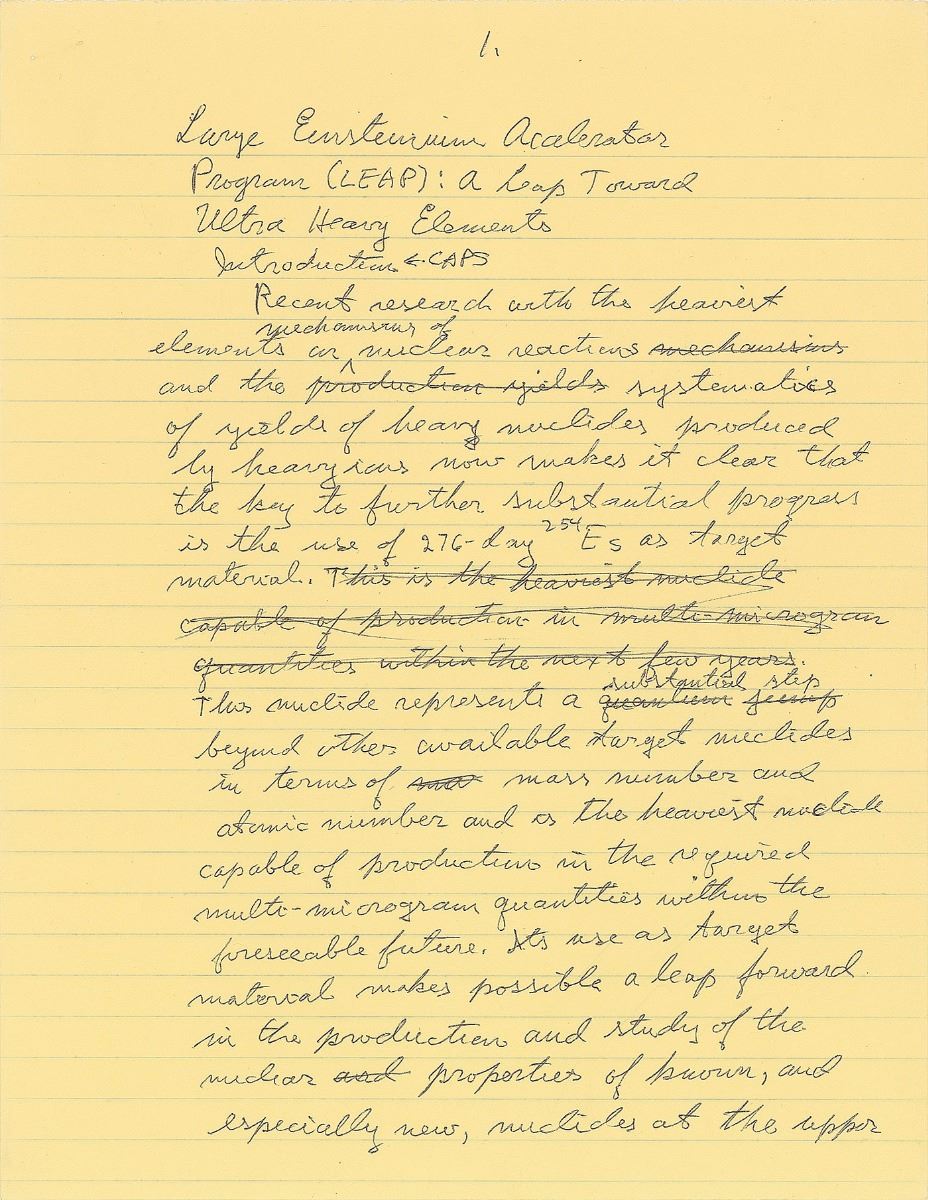 1.
Large Einsteinium Acelerator
Program (LEAP): A Leap Toward
Ultra Heavy Elements
Introduction ← CAPS
Recent research with the heaviest
mechanisms of
elements on ^ nuclear reactions mechanisms
and the production yields systematics
of yields of heavy nuclides produced
by heavy ions now makes it clear that
the key to further substantial progress
is the use of 276-day 254Es as target
material. This is the heaviest nuclide
capable of production in multi-microgram
quantities within the next few years.
substantial step
This nuclide represents a quantum jump
beyond other available target nuclides
in terms of mass number and
atomic number and is the heaviest nuclide
capable of production in the required
multi-microgram quantities within the
foreseeable future. Its use as target
material makes possible a leap forward
in the production and study of the
nuclear and properties of known, and
especially new, nuclides at the upper